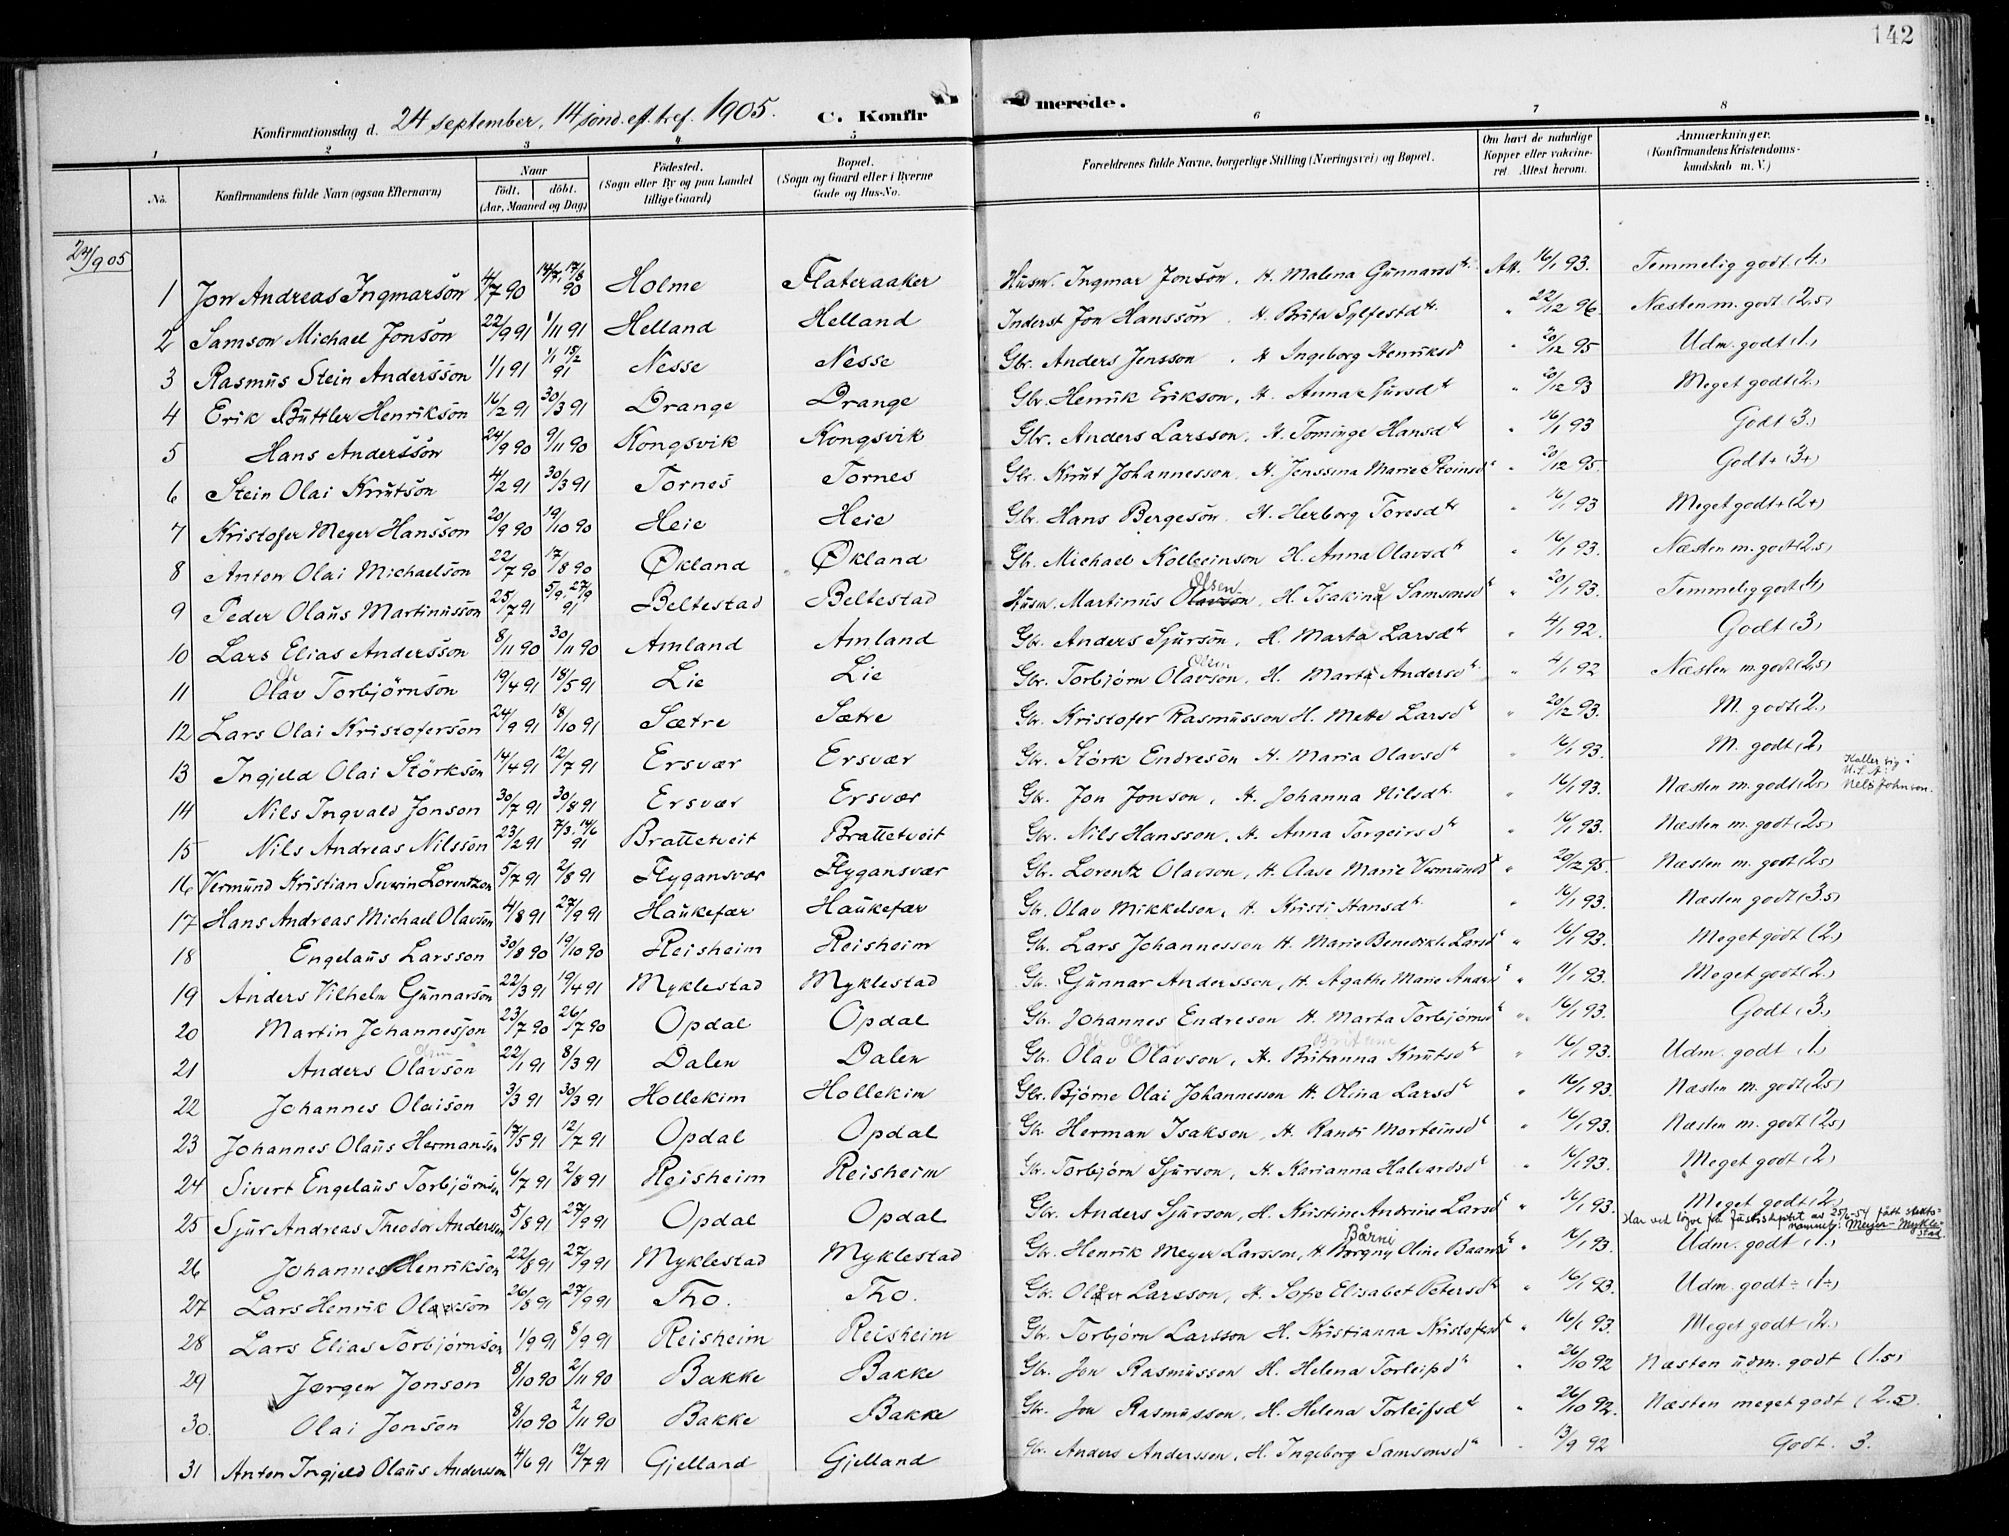 142
Konfirmationsdag d. 24 september, 14 sønd. eft. tref. 1905. C. Konfirmerede.
1 2 3 4 5 6 7 8
No. Konfirmandens fulde Navn (ogsaa Efternavn) Naar födt. döbt. (Aar, Maaned og Dag) Födested. (Sogn eller By og paa Landet tillige Gaard) Bopæl. (Sogn og Gaard eller i Byerne Gade og Hus-No. Forældrenes fulde Navne, borgerlige Stilling (Næringsvei) og Bopæl. Om havt de naturlige Kopper eller vakcineret. Attest herom. Anmærkninger. (Konfirmandens Kristendomskundskab m. V.)
24/9 05
1 Jon Andreas Ingmarsön 4/7 90 14/7, 17/8 90 Holme Flateraaker Husm. Ingmar Jonsön, H. Malena Gunnarsdtr. Att. 16/1 93. Temmelig godt (4)
2 Samson Michael Jonsön 22/9 91 1/11 91 Helland Helland Inderst Jon Hanssön, H. Brita Sylfestdtr. " 22/12 96. Næsten m. godt (2.5)
3 Rasmus Stein Anderssön 1/1 91 1/1 15/2 91 Nesse Nesse Gbr. Anders Jensson, H. Ingeborg Henriksd " 20/12 95 Udm. godt (1.)
4 Erik Büttler Henriksön 16/2 91 30/3 91 Drange Drange Gbr. Henrik Erikson, H. Anna Sjursdtr " 20/12 93 Meget godt (2.)
5 Hans Anderssön 24/9 90 9/11 90 Kongsvik Kongsvik Gbr. Anders Larsson, H. Tominge Hansdtr " 16/1 93 Godt (3.)
6 Stein Olai Knutsön 4/2 91 30/3 91 Tornes Tornes Gbr. Knut Johannesson, H. Jenssina Marie Steinsd " 20/12 95. Godt+ (3+)
7 Kristofer Meyer Hansson 20/9 90 19/10 90 Heie Heie Gbr. Hans Bergesön, H. Herborg Toresdtr " 16/1 93 Meget godt+ (2+)
8 Anton Olai Michaelson 22/7 90 17/8 90 Økland Økland Gbr. Michael Kolbeinson H. Anna Olavsdtr " 16/1 93. Næsten m. godt (2.5)
9 Peder Olaus Martinusson 25/7 91 5/9, 27/9 91 Beltestad Beltestad Husm. Martinus Olavson Olsen, H. Isakina Samsonsdtr " 20/1 93. Temmelig godt (4)
10 Lars Elias Andersson 8/11 90 30/11 90 Amland Amland Gbr. Anders Sjursön, H. Marta Larsdtr " 4/1 92. Godt (3)
11 Olav Torbjörnson 19/4 91 18/5 91 Lie Lie Gbr. Torbjörn Olavson, H. Marta Andersdtr. " 4/1 92 Næsten m. godt (2.5)
12 Lars Olai Kristoferson 24/9 91 18/10 91 Sætre Sætre Gbr. Kristofer Rasmusson H. Mette Larsdtr " 20/12 93. M. godt (2.)
13 Ingjeld Olai Störksön 14/4 91 12/7 91 Ersvær Ersvær Gbr. Störk Endresön H. Maria Olavsdtr " 16/1 93. M. godt (2.
14 Nils Ingvald Jonson 30/7 91 30/8 91 Ersvær Ersvær Gbr. Jon Jonson, H. Johanna Nilsdtr. " 16/1 93. Næsten m. godt (2.5) Kaller sig i U.S.A: Nels Johnson.
15 Nils Andreas Nilssön 23/2 91 7/3, 14/6 91 Brattetveit Brattetveit Gbr. Nils Hansson, H. Anna Torgeirsdtr " 16/1 93. Næsten m. godt (2.5)
16 Vermund Kristian Severin Lorentzson 5/7 91 2/8 91 Flygansvær Flygansvær Gbr. Lorentz Olavson, H. Aase Marie Vermundsd " 20/12 95. Næsten m. godt (2.5)
17 Hans Andreas Michael Olavson 4/8 91 27/9 91 Haukefær Haukefær Gbr. Olav Mikkelson, H. Kristi Hansdtr " 16/1 93. Næsten godt (3.5)
18 Engelaus Larsson 30/8 90 19/10 90 Reisheim Reisheim Gbr. Lars Johannesson H. Marie Benedikte Larsd " 16/1 93. Meget godt (2.)
19 Anders Vilhelm Gunnarson 22/3 91 19/4 91 Myklestad Myklestad Gbr. Gunnar Andersson, H. Agathe Marie Andersd " 11/1 93. Meget godt (2.)
20 Martin Johannesson 23/7 90 26/7 90 Opdal Opdal Gbr. Johannes Endreson H. Marta Torbjörnsd " 16/1 93. Godt (3.)
21 Anders Olavsön 22/1 91 8/3 91 Dalen Dalen Gbr. Olav Olavson, H. Britanna Knutsdtr " 16/1 93. Udm. godt (1.)
22 Johannes Olaison 3/3 91 30/3 91 Hollekim Hollekim Gbr. Bjørne Olai Johannesson H. Olina Larsdtr " 16/1 93. Næsten m. godt (2.5)
23 Johannes Olaus Hermansön 17/5 91 12/7 91 Opdal Opdal Gbr. Herman Isakson, H. Randi Morteinsdtr " 16/1 93. Næsten m. godt (2.5)
24 Sivert Engelaus Torbjörnson 6/7 91 2/8 91 Reisheim Reisheim Gbr. Torbjörn Sjurson, H. Karianna Halvardsdtr " 16/1 93. Meget godt (2.)
25 Sjur Andreas Theodor Andersson 5/8 91 27/9 91 Opdal Opdal Gbr. Anders Sjurson, H. Kristine Andrine Larsd " 16/1 93. Meget godt (2.)
Har ved løyve frå Justisdeptet av 25/6-54 fått slektsnamnet: Meyer-Myklestad.
26 Johannes Henrikson 22/8 91 27/9 91 Myklestad Myklestad Gbr. Henrik Meyer Larsson, H. Borgny Bårni Oline Baards " 16/1 93. Udm. godt (1.)
27 Lars Henrik Olavsön 26/8 91 27/9 91 Tho. Tho. Gbr. Olav Larsson, H. Sofie Elisabet Petersdtr " 16/1 93. Udm. godt÷ (1÷)
28 Lars Elias Torbjørnson 1/9 91 8/9 91 Reisheim Reisheim Gbr. Torbjörn Larsson H. Kristianna Kristofersd " 16/1 93. Meget godt (2.)
29 Jørgen Jonson 8/10 90 2/11 90 Bakke Bakke Gbr. Jon Rasmusson H. Helena Torleifsd " 26/10 92 Næsten udm. godt (1.5)
30. Olai Jonsön 8/10 90 2/11 90 Bakke Bakke Gbr. Jon Rasmusson, H. Helena Torleifsdtr " 26/10 92. Næsten meget godt (2.5).
31 Anton Ingjeld Olaus Andersson 4/6 91 12/7 91 Gjelland Gjelland Gbr. Anders Anderssen, H. Ingeborg Samsonsdtr " 13/9 92 Godt. 3.